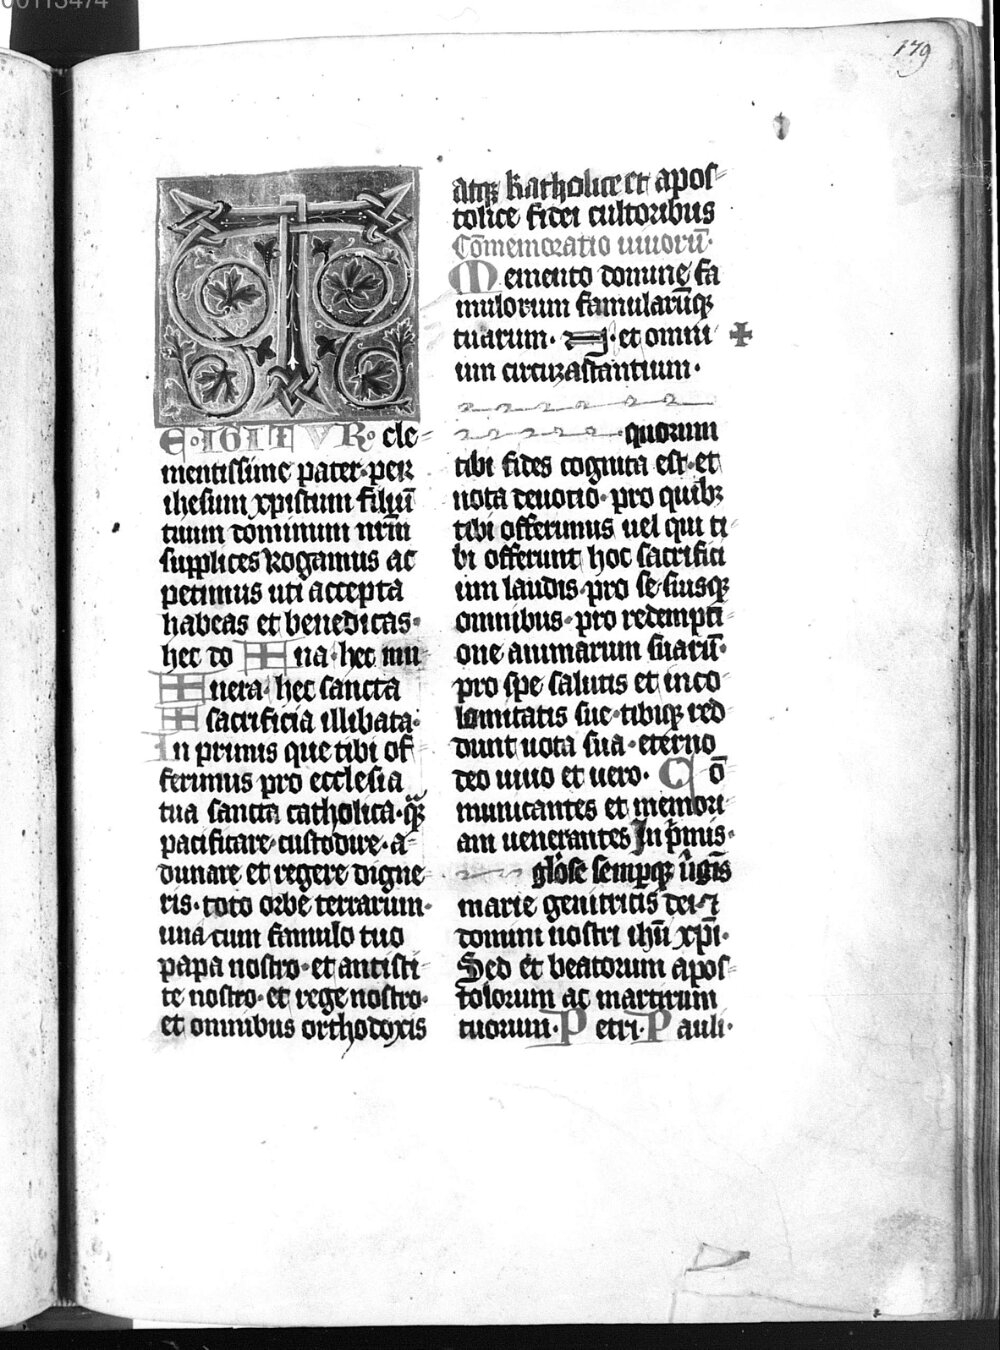 00113474
179
T
E·IGITVR· cle-
mentissime pater· per
ihesum xpistum filiū
tuum dominum nr̄m
supplices Rogamus ac
petimus uti accepta
habeas et benedicas·
hec do ✠ na· hec mu
✠ nera· hec sancta
✠ sacrificia illibata·
In primis que tibi of
ferimus pro ecclesia
tua sancta catholica· q̄
pacificare· custodire· a-
dunare et regere digne
ris· toto orbe terrarum·
una cum famulo tuo
papa nostro· et antisti
te nostro· et rege nostro·
et omnibus orthodoxis
atqꝫ katholice et apos-
tolice fidei cultoribus
Cōmemoratio uiuorū·
Memento domine fa
mulorum famularūqꝫ
tuarum· et omni ✠
um circumastantium·
quorum
tibi fides cognita est· et
nota deuotio· pro quibꝫ
tibi offerimus uel qui ti
bi offerunt hoc sacrifici
um laudis· pro se suisqꝫ
omnibus· pro redempti
one animarum suarū·
pro spe salutis et inco
lomitatis sue· tibiqꝫ red
dunt uota sua· eterno
deo uiuo et uero· Cō
municantes et memori
am uenerantes In p̄mis·
glōse sempqꝫ ūgīs
marie genitricis dei ⁊
domini nostri ihū xp̄i·
Sed et beatorum apos-
tolorum ac martirum
tuorum· Petri· Pauli·